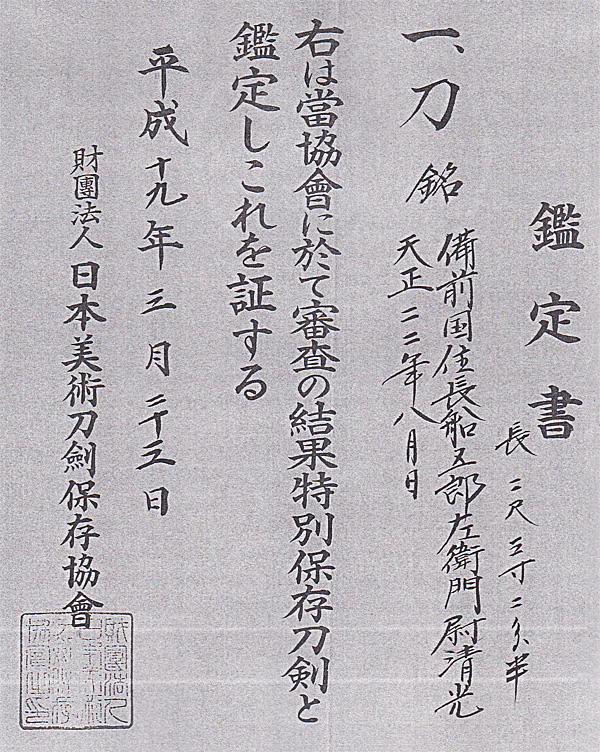 鑑定書
長二尺三寸二分半
一、刀 銘 備前国住長船五郎左衛門尉清光
天正二二年八月日
右は當協會に於て審査の結果特別保存刀剣と
鑑定しこれを証する
平成十九年三月二十三日
財團法人日本美術刀劍保存協會